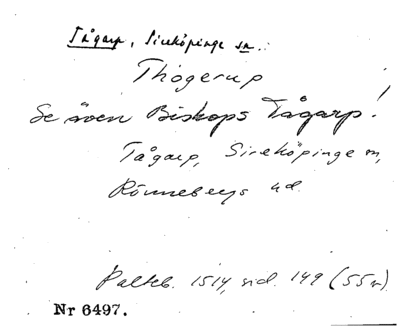 Tågarp, Sireköpinge sn.
Thogerup
Se även Biskops Tågarp!
Tågarp, Sireköpinge sn,
Rönnebergs hd.
Palteb. 1514, sid. 149 (55 v).
Nr 6497.